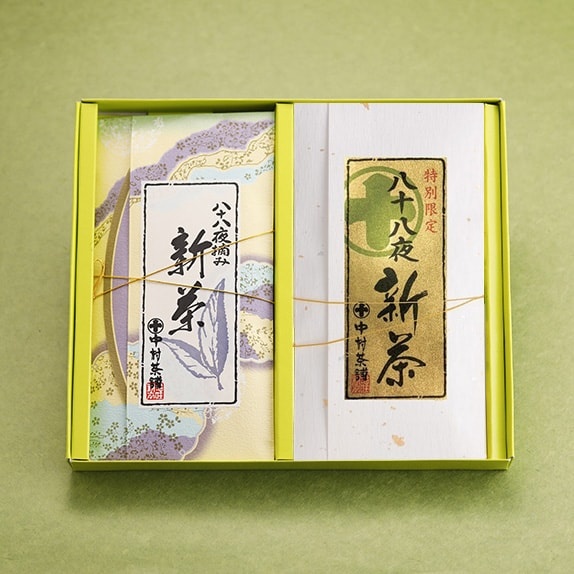 八十八夜摘み
新茶
中村茶舗
特別限定
八十八夜
新茶
中村茶舗